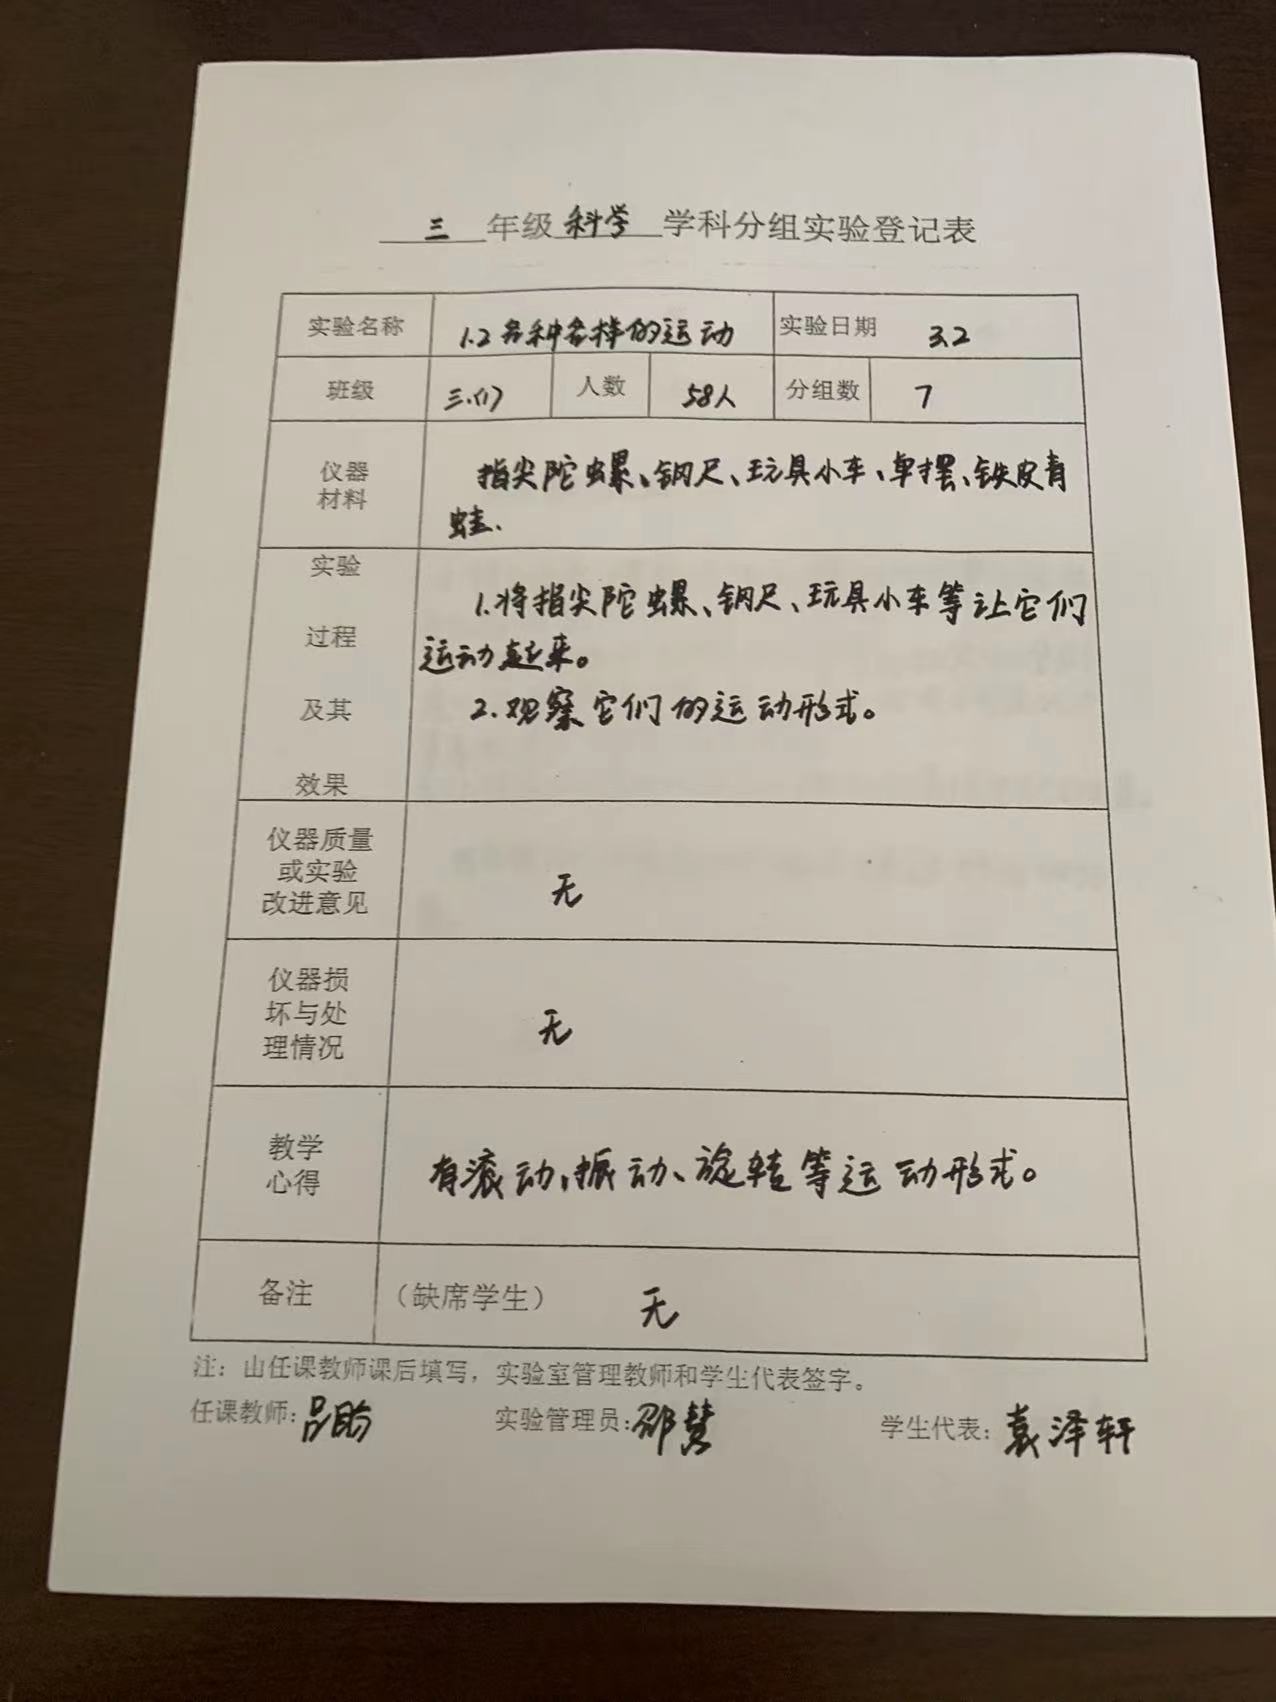 三 年级 科学 学科分组实验登记表
实验名称 1.2 各种各样的运动 实验日期 3.2
班级 三.(1) 人数 58人 分组数 7
仪器
材料
指尖陀螺、钢尺、玩具小车、单摆、铁皮青
蛙.
实验
过程
及其
效果
1.将指尖陀螺、钢尺、玩具小车等让它们
运动起来。
2.观察它们的运动形式。
仪器质量
或实验
改进意见
无
仪器损
坏与处
理情况
无
教学
心得
有滚动、振动、旋转等运动形式。
备注 (缺席学生) 无
注: 由任课教师课后填写, 实验室管理教师和学生代表签字。
任课教师: 实验管理员: 邵慧 学生代表: 袁泽轩